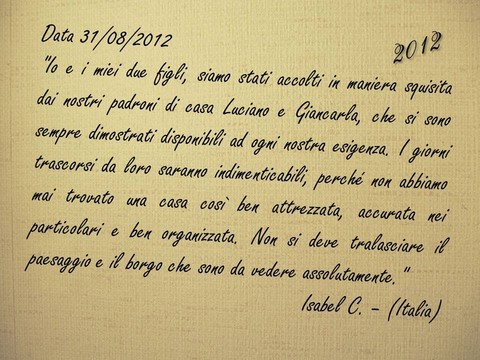 Data 31/08/2012
2012
"Io e i miei due figli, siamo stati accolti in maniera squisita
dai nostri padroni di casa Luciano e Giancarla, che si sono
sempre dimostrati disponibili ad ogni nostra esigenza. I giorni
trascorsi da loro saranno indimenticabili, perché non abbiamo
mai trovato una casa così ben attrezzata, accurata nei
particolari e ben organizzata. Non si deve tralasciare il
paesaggio e il borgo che sono da vedere assolutamente."
Isabel C. – (Italia)